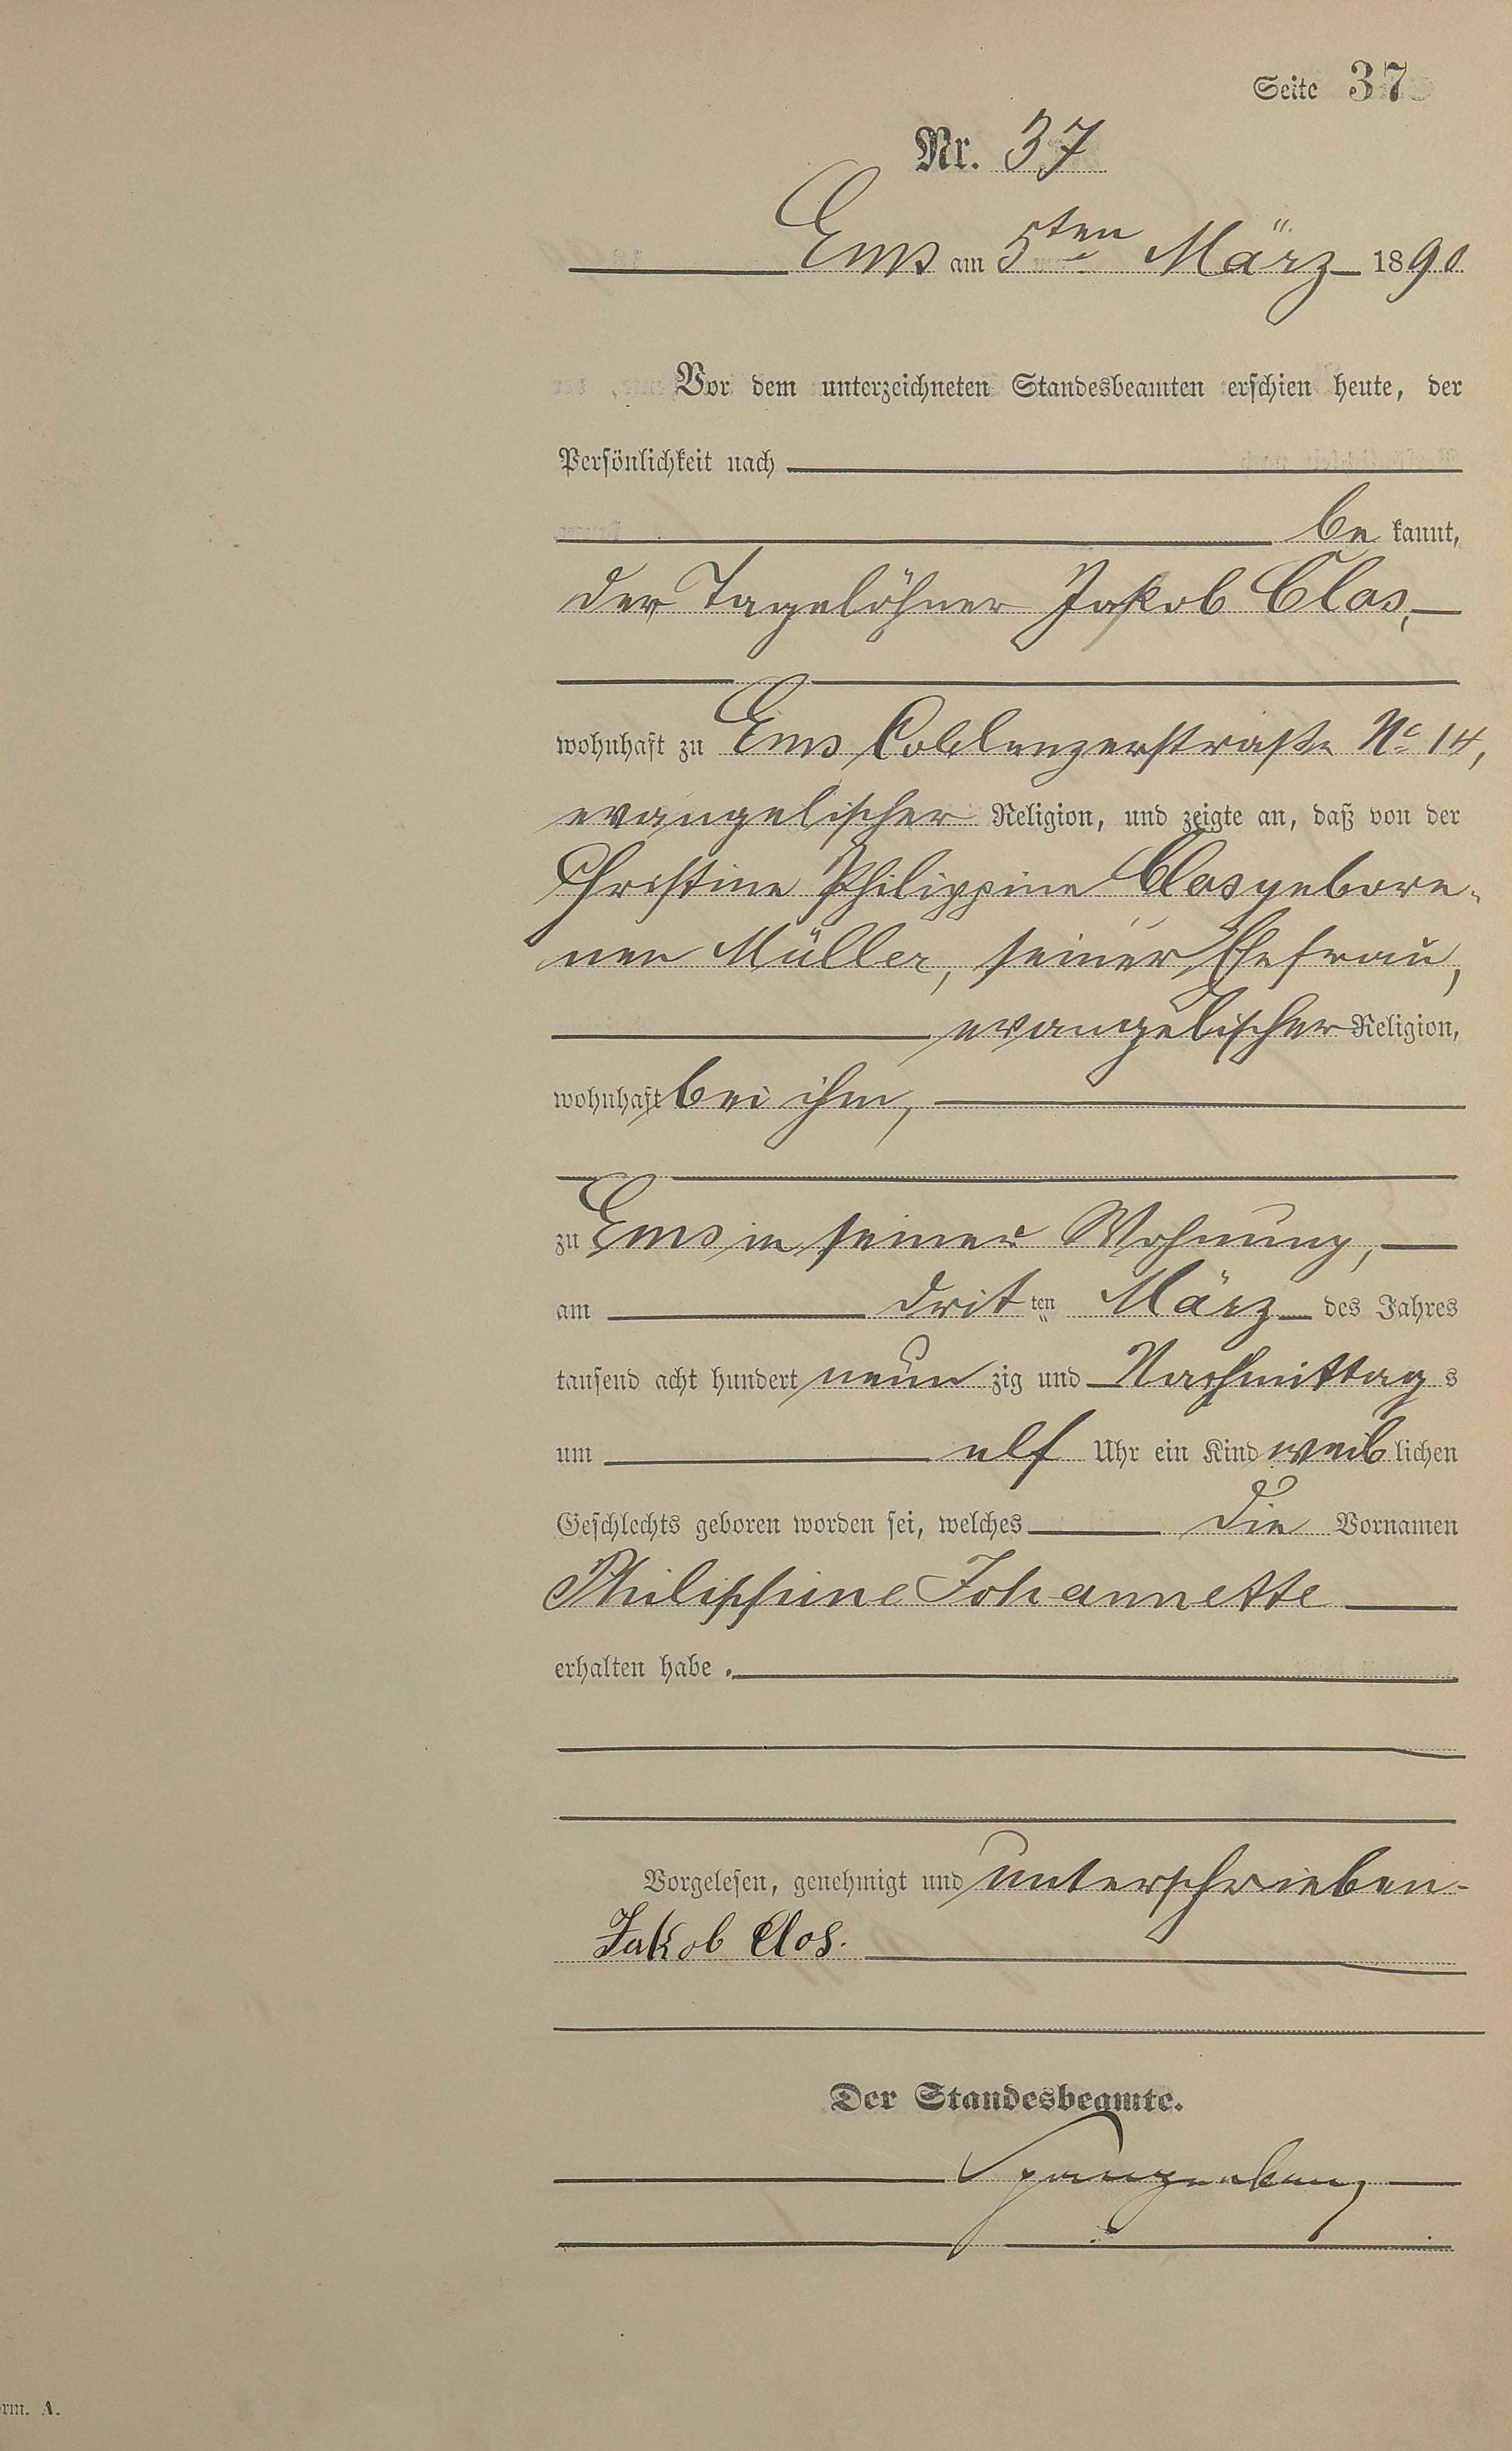 Seite 37
Nr. 37
Ems am 5ten März 1890
Vor dem unterzeichneten Standesbeamten erschien heute, der
Persönlichkeit nach
be kannt,
der Tagelöhner Jakob Clos,
wohnhaft zu Ems Coblenzerstraße No 14,
evangelischer Religion, und zeigte an, daß von der
Christine Philippine Clos gebore-
nen Müller, seiner Ehefrau,
evangelischer Religion,
wohnhaft bei ihm,
zu Ems in seiner Wohnung,
am drit ten März des Jahres
tausend acht hundert neun zig und Nachmittag s
um elf Uhr ein Kind weib lichen
Geschlechts geboren worden sei, welches die Vornamen
Philippine Johannette
erhalten habe.
Vorgelesen, genehmigt und unterschrieben.
Jakob Clos.
Der Standesbeamte.
Spangenberg
orm. A.